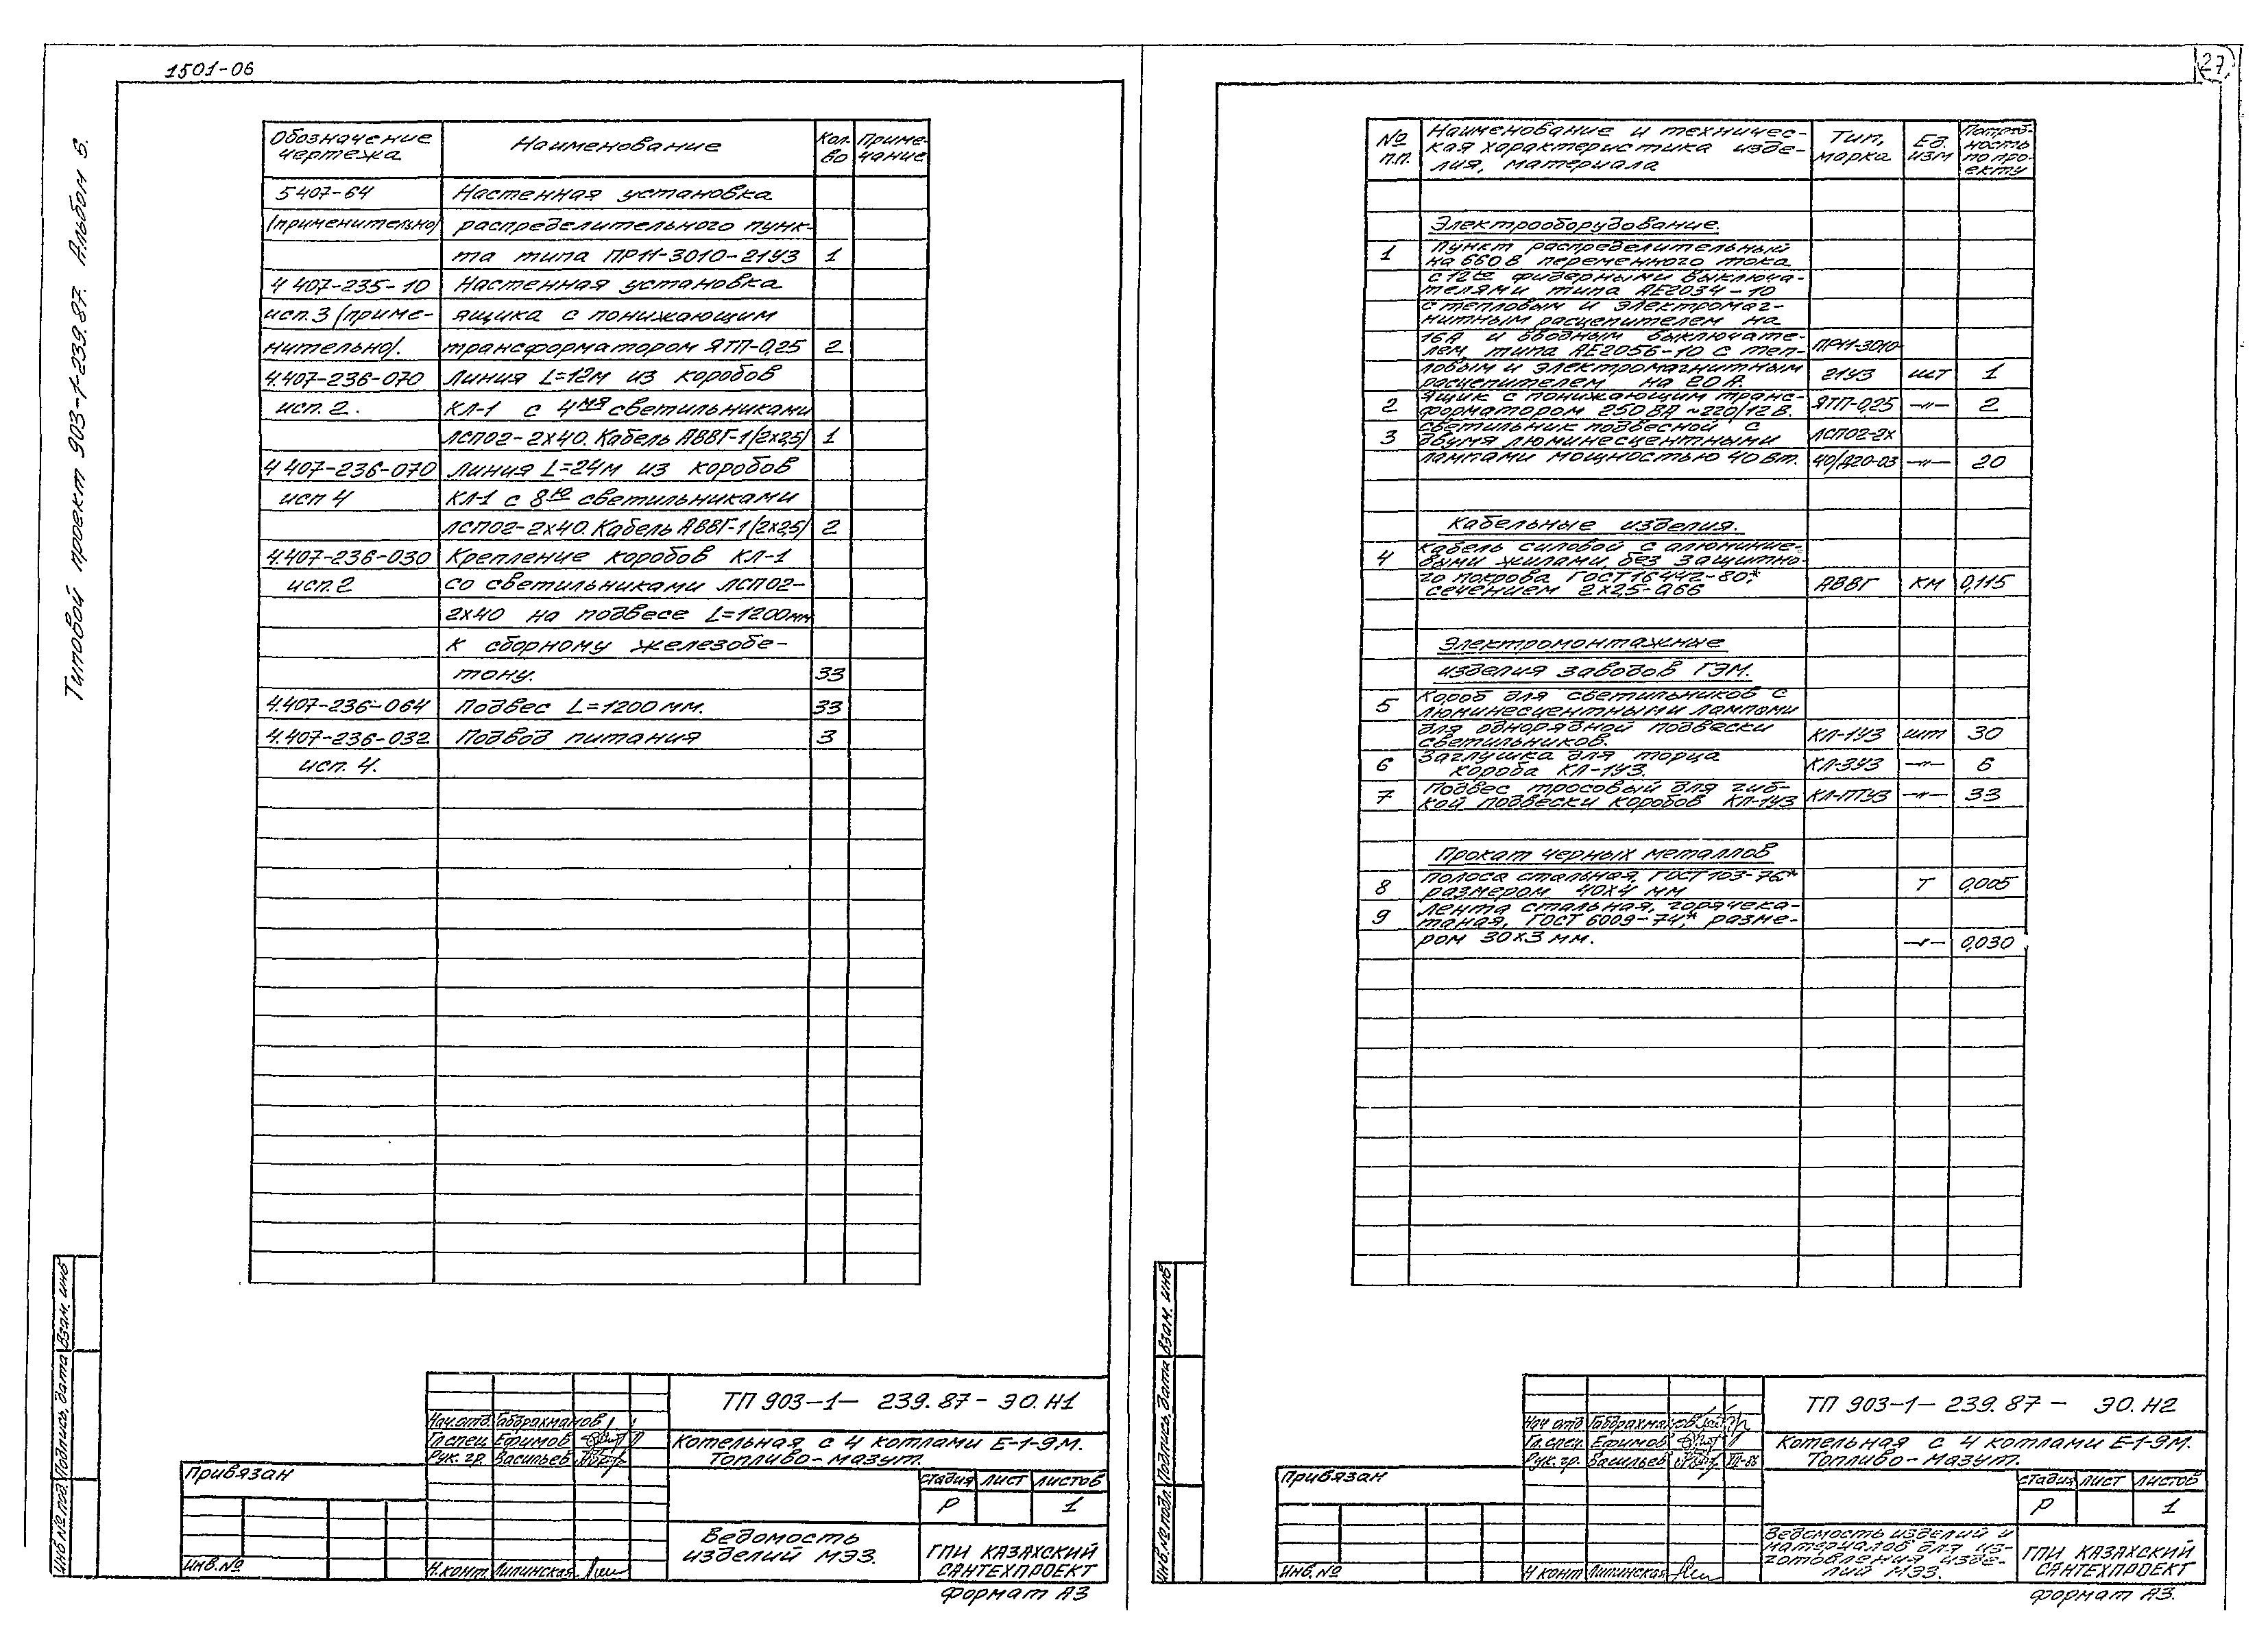 1501-06
27
Типовой проект 903-1-239.87. Альбом 5.
Обозначение чертежа Наименование Кол-во Приме-чание
5407-64 Настенная установка
/применительно/ распределительного пунк-
та типа ПР11-3010-21У3 1
4 407-235-10 Настенная установка
исп.3 /приме- ящика с понижающим
нительно/. трансформатором ЯТП-0,25 2
4.407-236-070 Линия L=12м из коробов
исп. 2. КЛ-1 с 4мя светильниками
ЛСП02-2х40. Кабель АВВГ-1/2х2,5/ 1
4 407-236-070 Линия L=24м из коробов
исп 4 КЛ-1 с 8ю светильниками
ЛСП02-2х40. Кабель АВВГ-1/2х2,5/ 2
4.407-236-030 Крепление коробов КЛ-1
исп.2 со светильниками ЛСП02-
2х40 на подвесе L=1200мм
к сборному железобе-
тону. 33
4.407-236-064 Подвес L=1200мм. 33
4.407-236-032 Подвод питания 3
исп. 4.
Взам. инв
Подпись, дата
Инв № под.
Привязан
Инв.№
Нач.отд. Габдрахманов
Гл.спец Ефимов
Рук. гр. Васильев
Н.конт Липинская
ТП 903-1- 239.87- ЭО.Н1
Котельная с 4 котлами Е-1-9М.
Топливо-мазут.
стадия лист листов
Р 1
Ведомость
изделий МЭЗ.
ГПИ КАЗАХСКИЙ
САНТЕХПРОЕКТ
Формат А3
№ п.п. Наименование и техничес-кая характеристика изде-лия, материала Тип, марка Ед. изм Потреб-ность по про-екту
Электрооборудование.
1 Пункт распределительный
на 660В переменного тока
с 12ю фидерными выключа-
телями типа АЕ2034-10
с тепловым и электромаг-
нитным расцепителем на
16А и вводным выключате-
лем типа АЕ2056-10 с теп- ПР11-3010-
ловым и электромагнитным
расцепителем на 20А. 21У3 шт 1
2 Ящик с понижающим транс-
форматором 250ВА ~220/12В. ЯТП-0,25 —"— 2
3 Светильник подвесной с
двумя люминесцентными ЛСП02-2х
лампами мощностью 40вт. 40/Д20-03 —"— 20
Кабельные изделия.
4 Кабель силовой с алюминие-
выми жилами, без защитно-
го покрова ГОСТ16442-80,*
сечением 2х2,5-0,66 АВВГ км 0,115
Электромонтажные
изделия заводов ГЭМ.
5 Короб для светильников с
люминесцентными лампами
для однорядной подвески
светильников. КЛ-1У3 шт 30
6 Заглушка для торца
короба КЛ-1У3. КЛ-3У3 —"— 6
7 Подвес тросовый для гиб-
кой подвески коробов КЛ-1У3 КЛ-ПТУ3 —"— 33
Прокат черных металлов
8 Полоса стальная, ГОСТ103-76*
размером 40х4 мм Т 0,005
9 Лента стальная, горячека-
таная, ГОСТ 6009-74,* разме-
ром 30х3мм. —"— 0,030
Взам. инв
Подпись, дата
Инв.№ подл.
Привязан
Инв.№
Нач отд Габдрахманов
Гл.спец. Ефимов
Рук.гр. Васильев
Н конт Липинская
ТП 903-1- 239.87- ЭО.Н2
Котельная с 4 котлами Е-1-9М.
Топливо-мазут.
стадия лист листов
Р 1
Ведомость изделий и
материалов для из-
готовления изде-
лий МЭЗ.
ГПИ КАЗАХСКИЙ
САНТЕХПРОЕКТ
Формат А3.